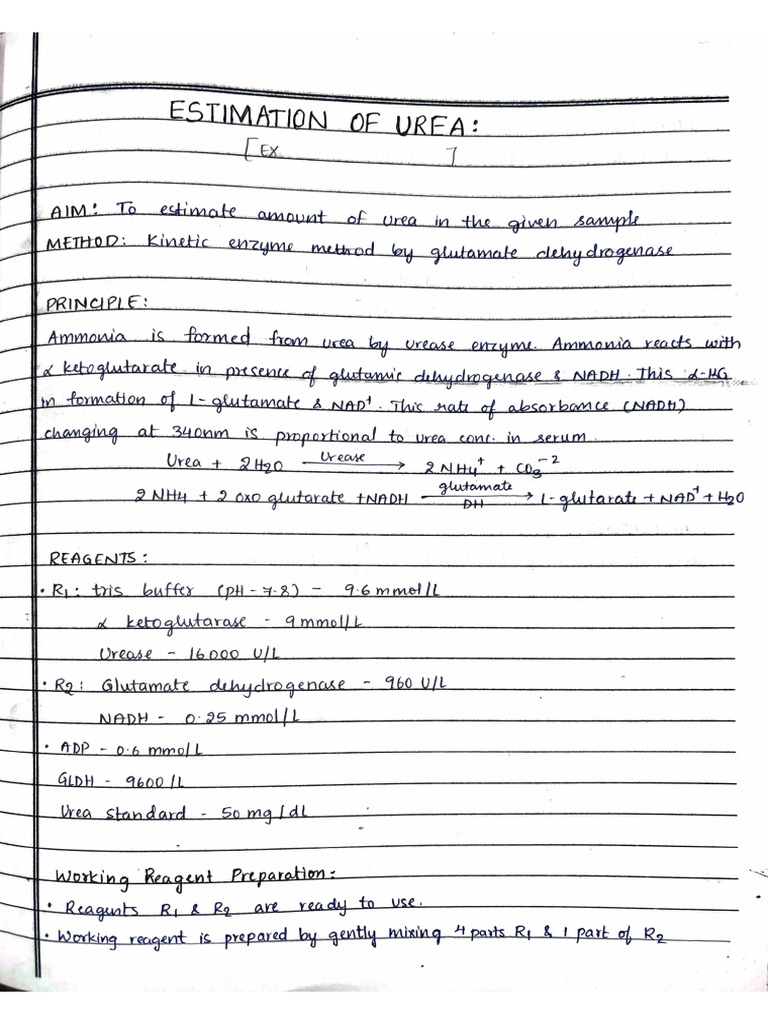 ESTIMATION OF UREA:
[EX ]
AIM: To estimate amount of urea in the given sample
METHOD: Kinetic enzyme method by glutamate dehydrogenase
PRINCIPLE:
Ammonia is formed from urea by urease enzyme. Ammonia reacts with
α ketoglutarate in presence of glutamic dehydrogenase & NADH. This α-HG
in formation of L-glutamate & NAD⁺. This rate of absorbance (NADH)
changing at 340nm is proportional to urea conc. in serum.
Urea + 2H₂O —Urease→ 2NH₄⁺ + CO₃⁻²
2NH₄ + 2 oxo glutarate + NADH —glutamate DH→ L-glutarate + NAD⁺ + H₂O
REAGENTS:
• R₁: tris buffer (pH - 7.8) - 9.6 mmol/L
α ketoglutarase - 9 mmol/L
Urease - 16000 U/L
• R₂: Glutamate dehydrogenase - 960 U/L
NADH - 0.25 mmol/L
• ADP - 0.6 mmo/L
GLDH - 9600 /L
Urea standard - 50 mg/dL
Working Reagent Preparation:
• Reagents R₁ & R₂ are ready to use.
• Working reagent is prepared by gently mixing 4 parts R₁ & 1 part of R₂